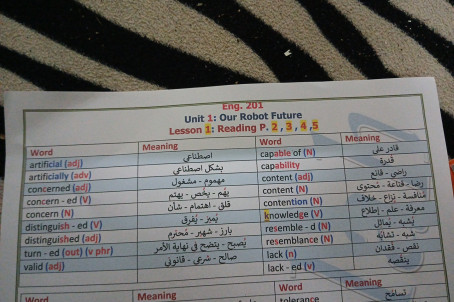 Eng. 201
Unit 1: Our Robot Future
Lesson 1: Reading P. 2 , 3 , 4 ,5
Word Meaning Word Meaning
artificial (adj) اصطناعي capable of (N) قادر على
artificially (adv) بشكل اصطناعي capability قدرة
concerned (adj) مهموم - مشغول content (adj) راضي - قانع
concern - ed (V) يهُم - يخُص - يهتم content (N) رضا - قناعة - محتوى
concern (N) قلق - اهتمام - شأن contention (N) مُنافسة - نزاع - خلاف
distinguish - ed (V) يُميز - يُفرق knowledge (V) معرفة - علم - إطلاع
distinguished (adj) بارز - شهير - مُحترم resemble - d (N) يُشبه - يُماثل
turn - ed (out) (v phr) يُصبح - يتضح في نهاية الأمر resemblance (N) شبه - تشابُه
valid (adj) صالح - شرعي - قانوني lack (n) نقص - فقدان
lack - ed (v) ينقصه
Word Meaning Word Meaning
tolerance تسامح